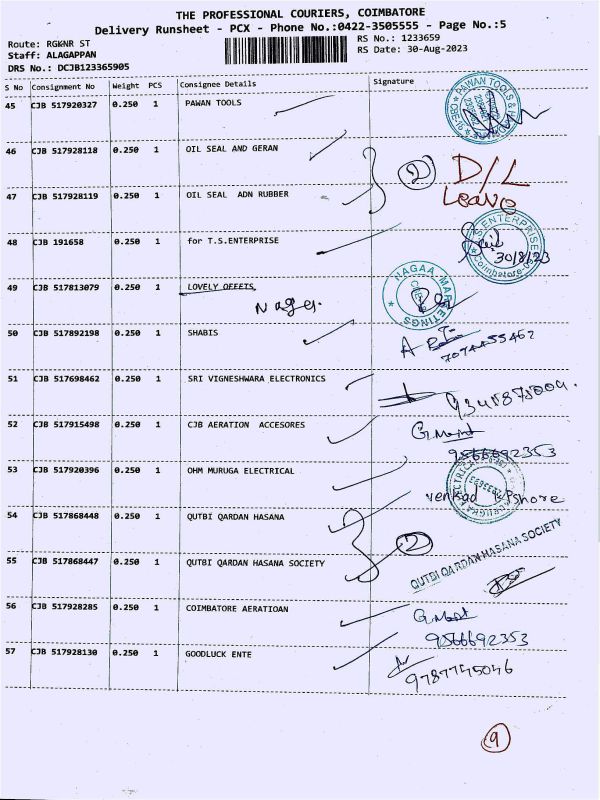 THE PROFESSIONAL COURIERS, COIMBATORE
Delivery Runsheet - PCX - Phone No.:0422-3505555 - Page No.:5
Route: RGKNR ST RS No.: 1233659
Staff: ALAGAPPAN RS Date: 30-Aug-2023
DRS No.: DCJB123365905
S No Consignment No Weight PCS Consignee Details Signature
45 CJB 517920327 0.250 1 PAWAN TOOLS
PAWAN TOOLS &
46 CJB 517928118 0.250 1 OIL SEAL AND GERAN
2 D/L
47 CJB 517928119 0.250 1 OIL SEAL ADN RUBBER
Leave
48 CJB 191658 0.250 1 for T.S.ENTERPRISE
S.ENTERPRISE
Coimbatore
30/8/23
49 CJB 517813079 0.250 1 LOVELY OFFETS,
Naga.
NAGAA MARKETINGS
50 CJB 517892198 0.250 1 SHABIS
51 CJB 517698462 0.250 1 SRI VIGNESHWARA ELECTRONICS
52 CJB 517915498 0.250 1 CJB AERATION ACCESORES
9566692353
53 CJB 517920396 0.250 1 OHM MURUGA ELECTRICAL
54 CJB 517868448 0.250 1 QUTBI QARDAN HASANA
2
QUTBI QARDAN HASANA SOCIETY
55 CJB 517868447 0.250 1 QUTBI QARDAN HASANA SOCIETY
56 CJB 517928285 0.250 1 COIMBATORE AERATIOAN
9566692353
57 CJB 517928130 0.250 1 GOODLUCK ENTE
9787745046
9